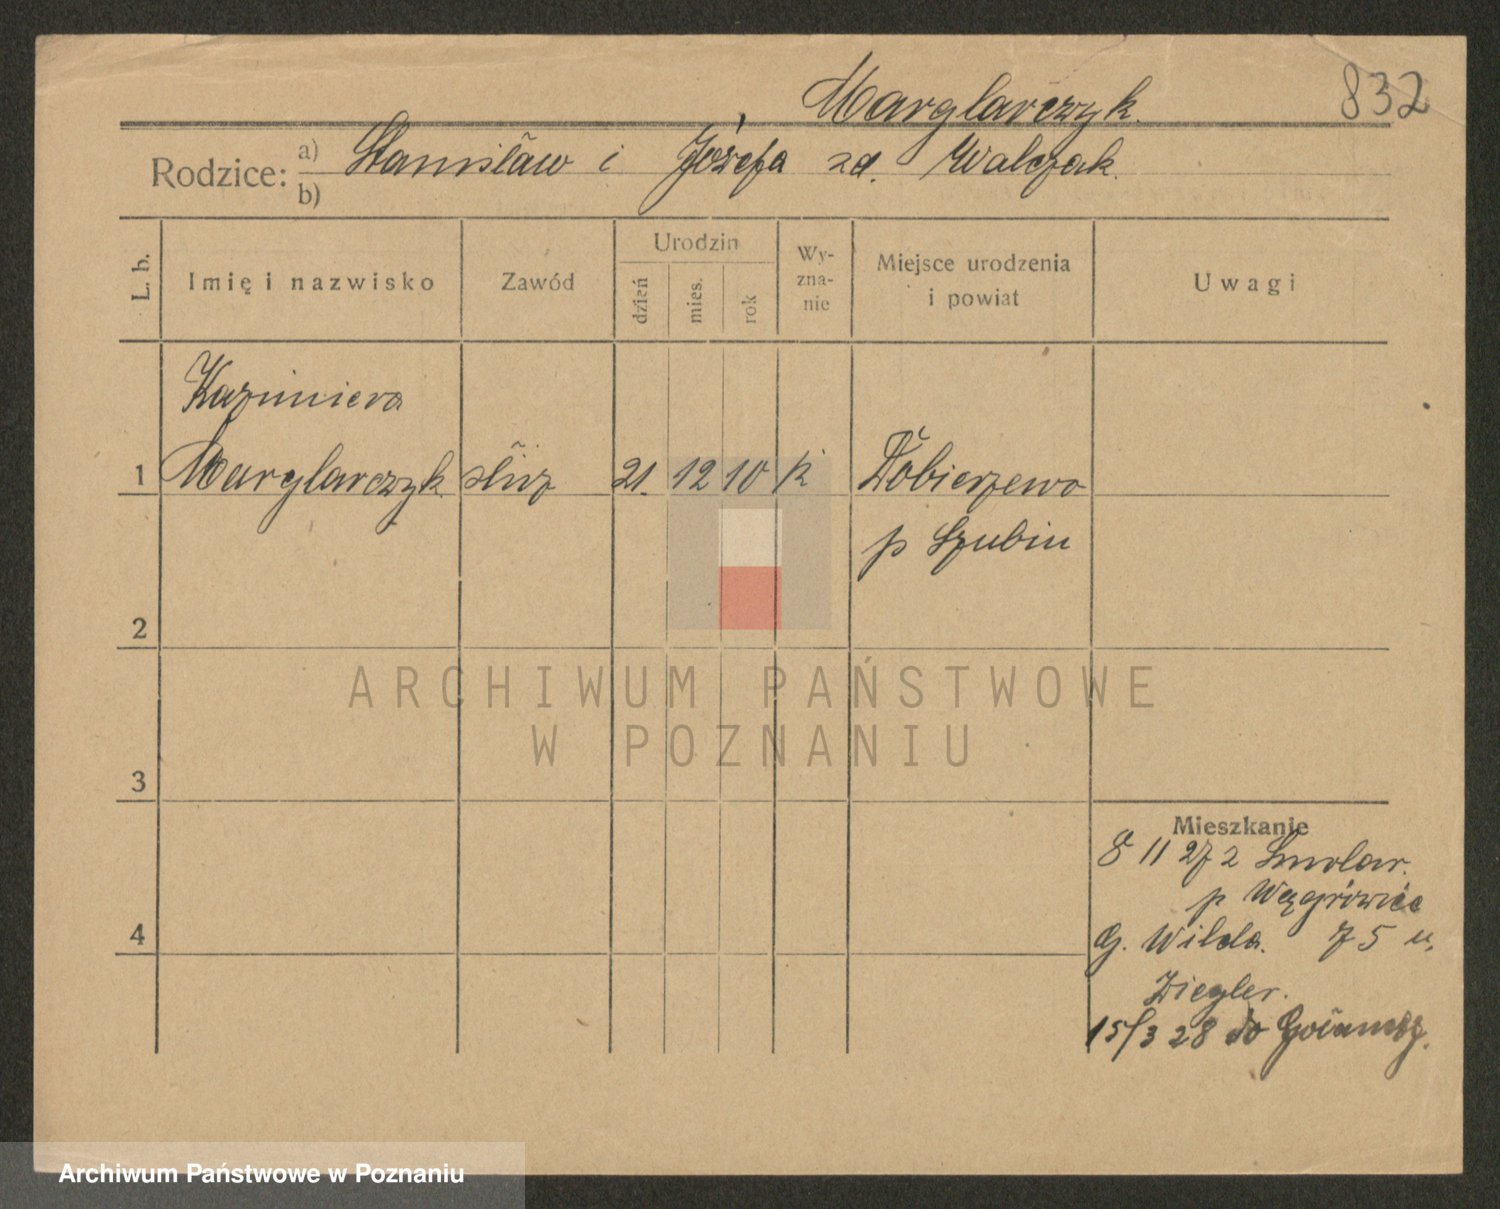 832
Marglarczyk.
Rodzice: a) Stanisław i Józefa zd. Walczak.
b)
L. b.
Imię i nazwisko
Zawód
Urodzin
dzień
mies.
rok
Wy-
zna-
nie
Miejsce urodzenia
i powiat
Uwagi
Kazimiera
1 Marglarczyk służ 21. 12 10 k Dobierzewo
p Szubin
2
3
4
Mieszkanie
8 11 27 z Smolar.
p Wągrówiec
G. Wilda. 75 u.
Ziegler.
15/3 28 do Gołańczy.
ARCHIWUM PAŃSTWOWE
W POZNANIU
Archiwum Państwowe w Poznaniu